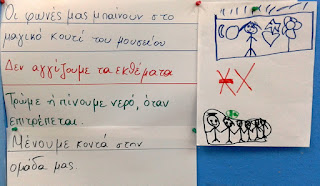 Οι φωνές μας μπαίνουν στο
μαγικό κουτί του μουσείου
Δεν αγγίζουμε τα εκθέματα
Τρώμε ή πίνουμε νερό, όταν
επιτρέπεται.
Μένουμε κοντά στην
ομάδα μας.